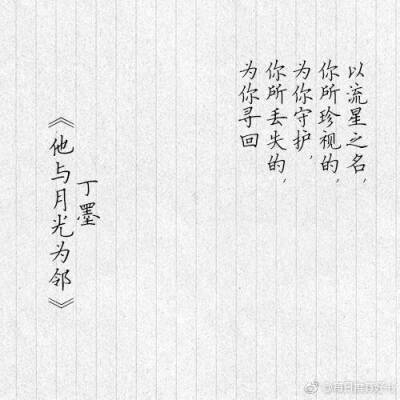 以流星之名，
你所珍视的，
为你守护，
你所丢失的，
为你寻回
丁墨
《他与月光为邻》